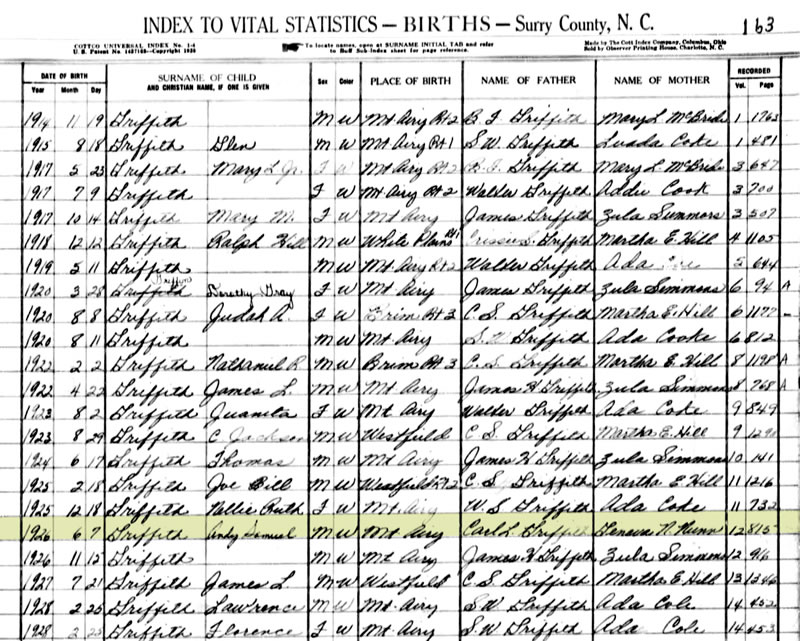 INDEX TO VITAL STATISTICS — BIRTHS — Surry County, N. C. 163
COTTCO UNIVERSAL INDEX No. 1-4
U. S. Patent No. —Copyright
To locate names, open at SURNAME INITIAL TAB and refer
to Buff Sub-Index sheet for page reference.
Made by The Cott Index Company, Columbus, Ohio
Sold by Observer Printing House, Charlotte, N. C.
DATE OF BIRTH SURNAME OF CHILD AND CHRISTIAN NAME, IF ONE IS GIVEN Sex Color PLACE OF BIRTH NAME OF FATHER NAME OF MOTHER RECORDED
Year Month Day Vol. Page
1914 11 19 Griffith M W Mt Airy Rt 2 B F Griffith Mary L McBride 1 1763
1915 8 18 Griffith Glen M W Mt Airy Rt 1 S. W. Griffith Luada Coke 1 481
1917 5 23 Griffith Mary L Jr. F W Mt Airy Rt 2 Griffith Mary L McBride 3 647
1917 7 9 Griffith F W Mt Airy Rt 2 Walter Griffith Addie Cook 3 700
1917 10 14 Griffith Mary M. F W Mt Airy James Griffith Zula Simmons 3 507
1918 12 12 Griffith Ralph Hill M W White Plains Rt 1 Griffith Martha E. Hill 4 1105
1919 5 11 Griffith M W Mt. Airy Rt 2 Walter Griffith Ada 5 644
1920 3 28 Griffith Dorothy Gray F W Mt Airy James Griffith Zula Simmons 6 94 A
1920 8 8 Griffith Judah A. F W Brim Rt 3 C. S. Griffith Martha E. Hill 6 1177
1920 8 11 Griffith M W Mt Airy S. W Griffith Ada Cooke 6 812
1922 2 2 Griffith Nathaniel R M W Brim Rt 3 C. S. Griffith Martha E. Hill 8 1198 A
1922 4 22 Griffith James L. M W Mt Airy James H Griffith Zula Simmons 8 768 A
1923 8 2 Griffith Juanita F W Mt Airy Walter Griffith Ada Coke 9 849
1923 8 29 Griffith C Jackson M W Westfield C S. Griffith Martha E. Hill 9 1290
1924 6 17 Griffith Thomas M W Mt Airy James H Griffith Zula Simmons 10 141
1925 2 18 Griffith Joe Bill M W Westfield Rt 2 C. S. Griffith Martha E Hill 11 1216
1925 12 18 Griffith Nellie Ruth F W Mt Airy W. S Griffith Ada Coke 11 732
1926 6 7 Griffith Andy Samuel M W Mt Airy Carl L. Griffith Geneva N Nunn 12 815
1926 11 15 Griffith M W Mt Airy James H Griffith Zula Simmons 12 916
1927 7 21 Griffith James L M W Westfield C S. Griffith Martha E. Hill 13 1346
1928 2 25 Griffith Lawrence M W Mt. Airy S. W Griffith Ada Cole 14 452
1928 2 25 Griffith Florence F W Mt. Airy S. W Griffith Ada Cole 14 453